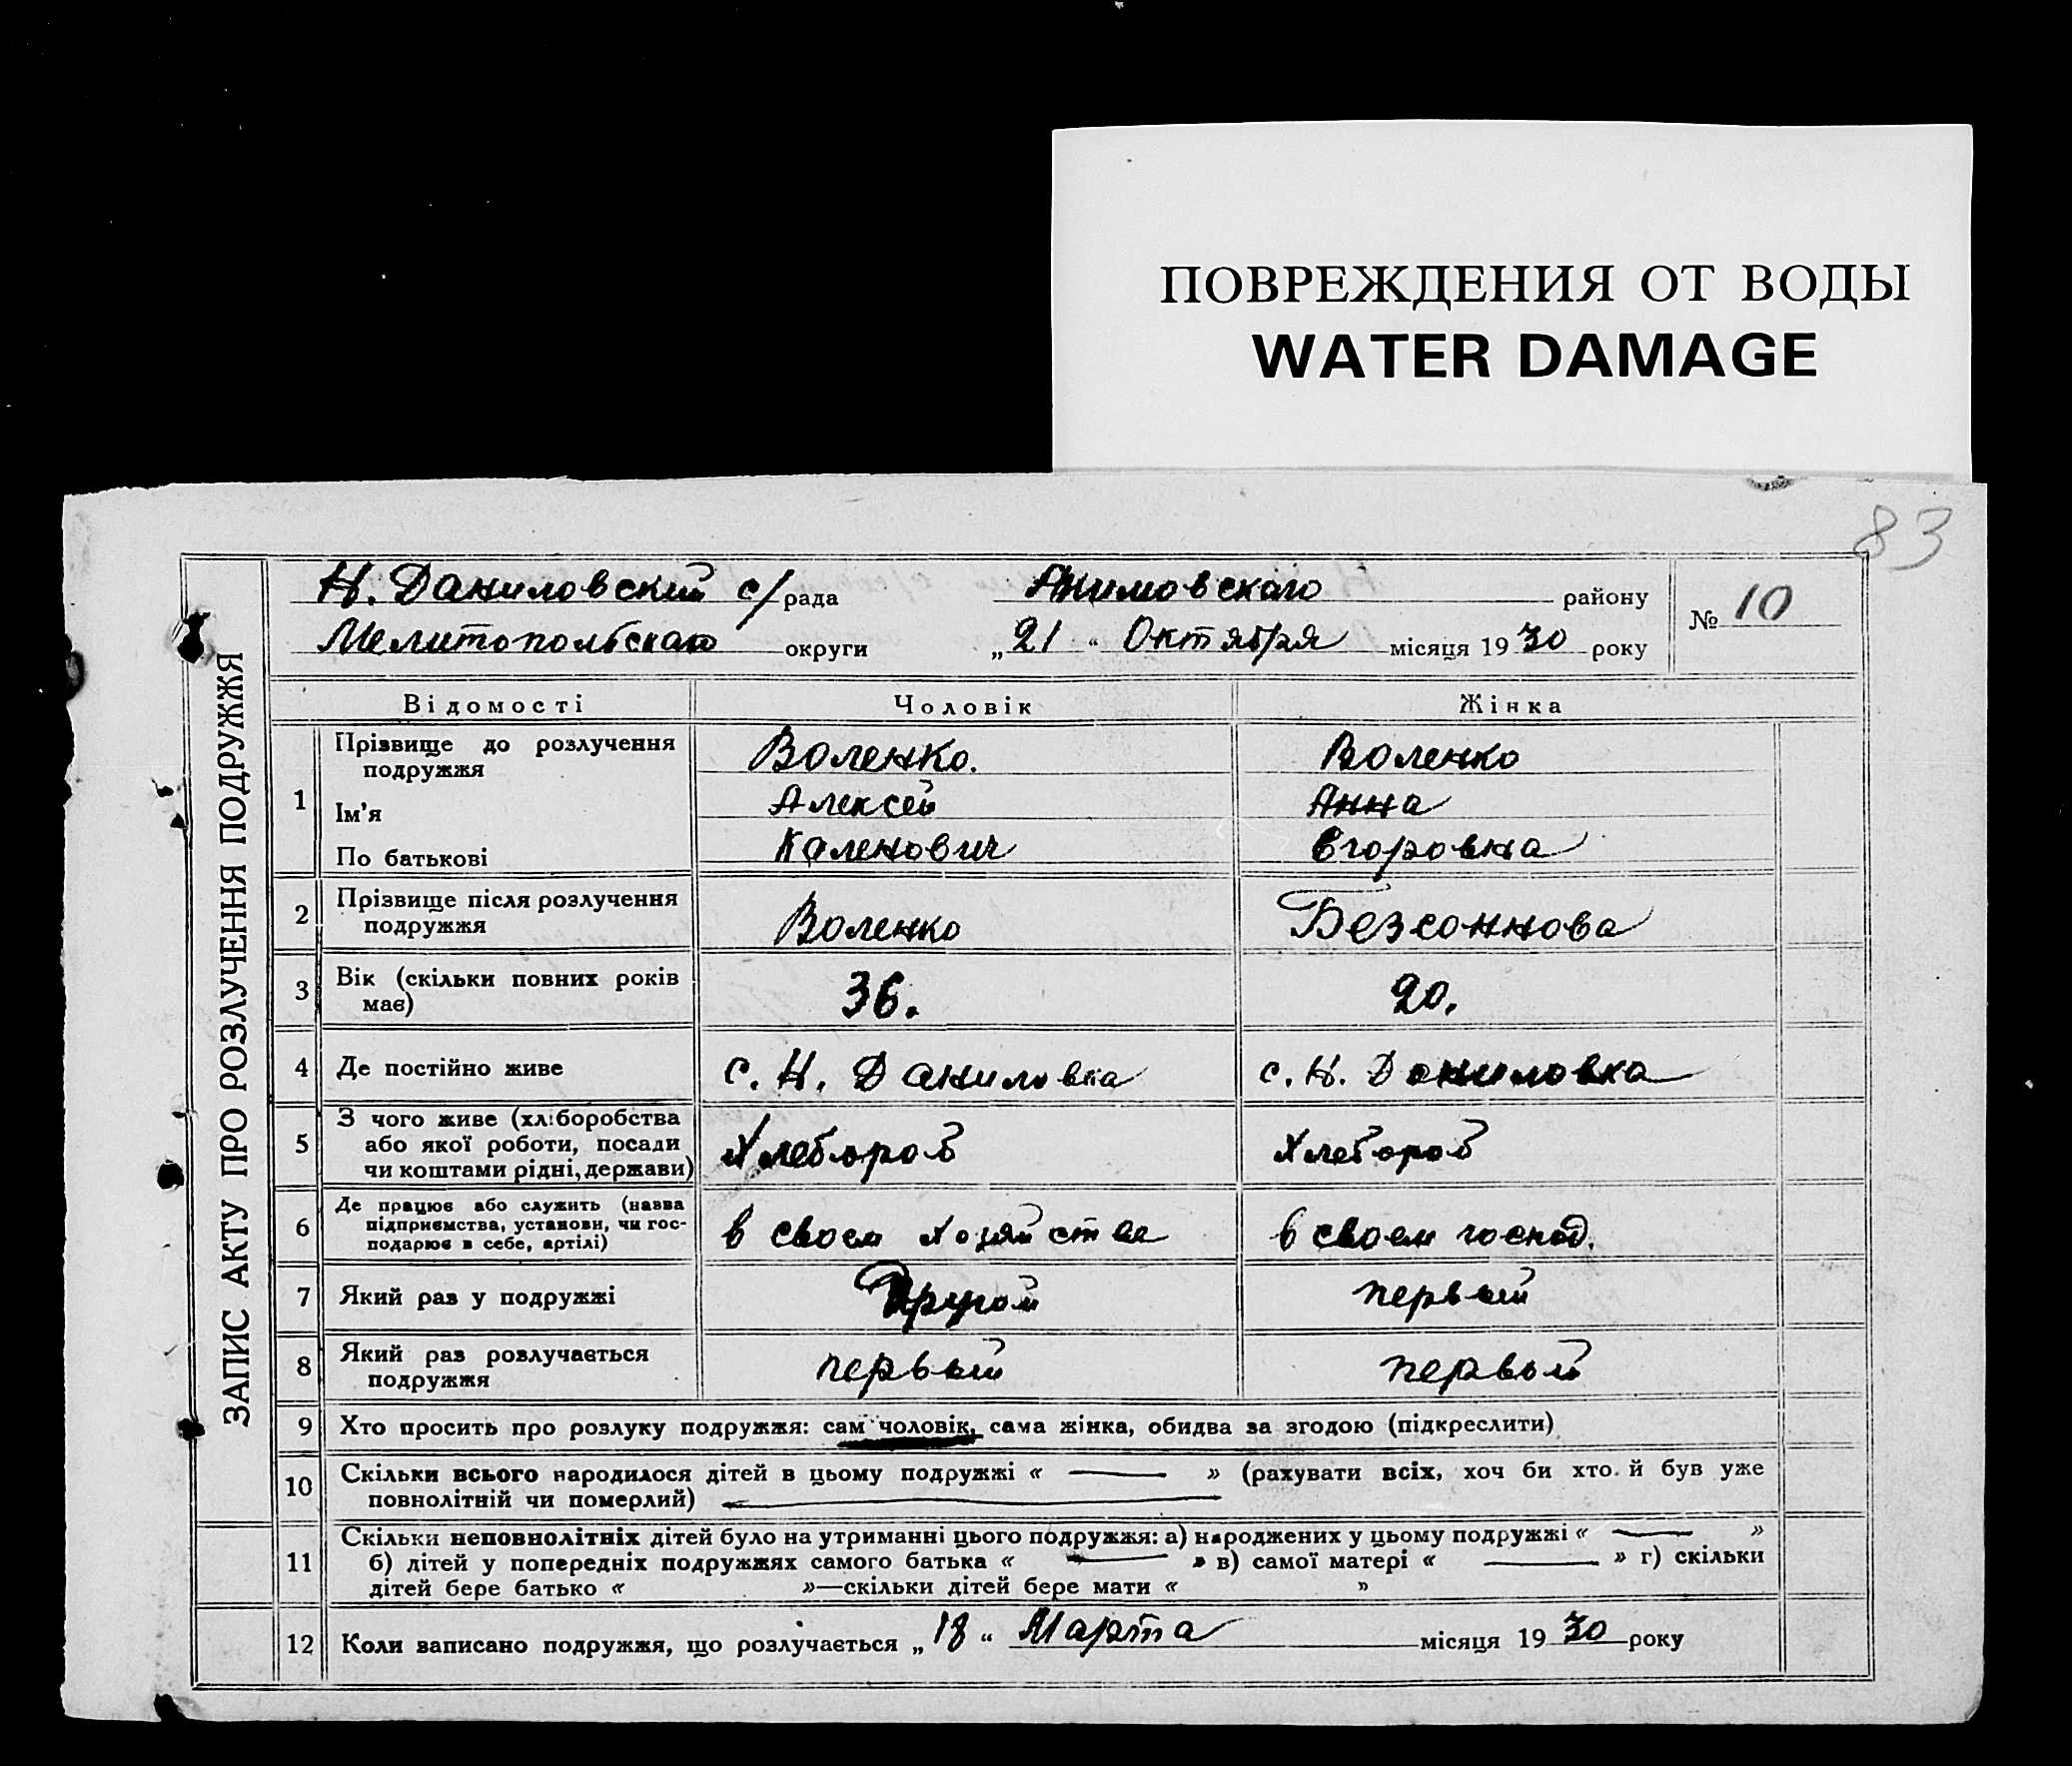 ПОВРЕЖДЕНИЯ ОТ ВОДЫ
WATER DAMAGE
83
ЗАПИС АКТУ ПРО РОЗЛУЧЕННЯ ПОДРУЖЖЯ
Н. Даниловский с/рада Акимовскаго району
№ 10
Мелитопольскаго округи „21“ Октября місяця 1930 року
Відомості Чоловік Жінка
1 Прізвище до розлучення подружжя Воленко. Воленко
Ім'я Алексей Анна
По батькові Каленович Егоровна
2 Прізвище після розлучення подружжя Воленко Безсоннова
3 Вік (скільки повних років має) 36. 20.
4 Де постійно живе с. Н. Даниловка с. Н. Даниловка
5 З чого живе (хліборобства або якої роботи, посади чи коштами рідні, держави) Хлебороб Хлебороб
6 Де працює або служить (назва підприємства, установи, чи господарює в себе, артілі) в своем хозяйстве в своем господ.
7 Який раз у подружжі Другой первый
8 Який раз розлучається подружжя первый первый
9 Хто просить про розлуку подружжя: сам чоловік, сама жінка, обидва за згодою (підкреслити)
10 Скільки всього народилося дітей в цьому подружжі « — » (рахувати всіх, хоч би хто й був уже
повнолітній чи померлий) —
11 Скільки неповнолітніх дітей було на утриманні цього подружжя: а) народжених у цьому подружжі « — »
б) дітей у попередніх подружжях самого батька « — » в) самої матері « — » г) скільки
дітей бере батько « »—скільки дітей бере мати « »
12 Коли записано подружжя, що розлучається „18“ Марта місяця 1930 року